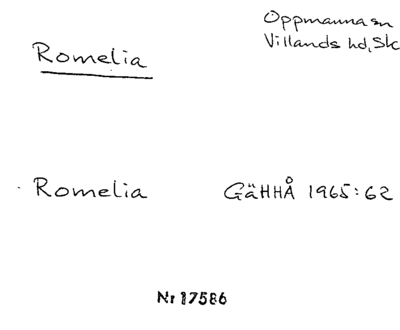 Romelia
Oppmanna sn
Villands hd, Sk
Romelia GäHHÅ 1965:62
Nr 17586